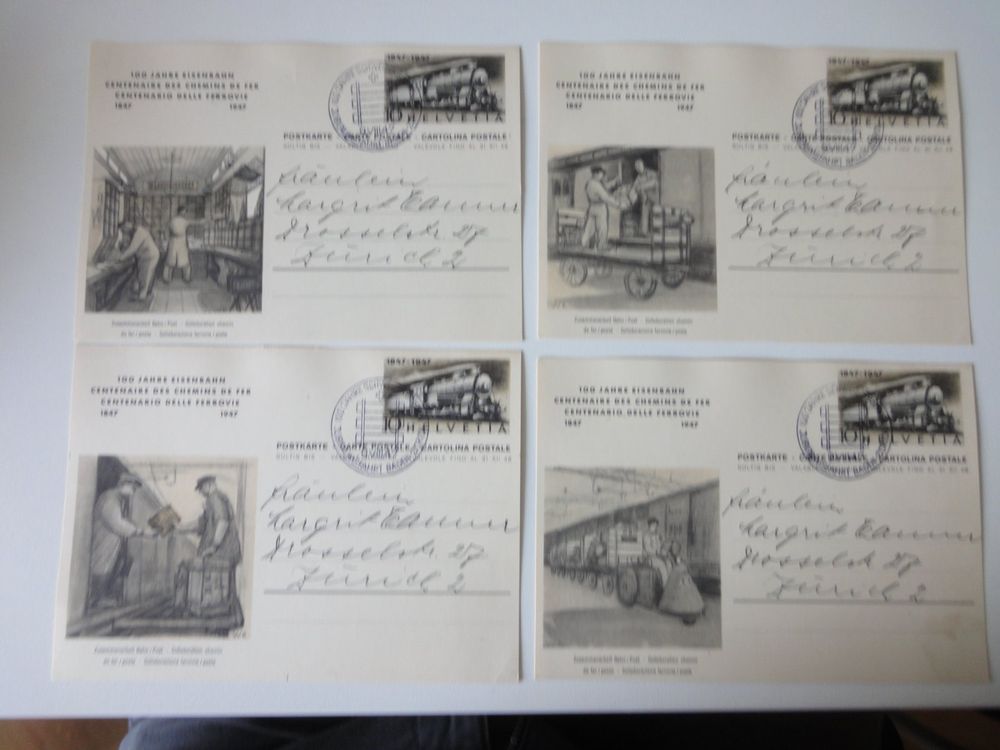 100 JAHRE EISENBAHN
CENTENAIRE DES CHEMINS DE FER
CENTENARIO DELLE FERROVIE
1847 1947
1847-1947
10 HELVETIA
POSTKARTE - CARTE POSTALE - CARTOLINA POSTALE
Fräulein
Margrit
Drosselstr. 27
Zürich 2
Zusammenarbeit Bahn / Post - Collaboration chemin
de fer / poste - Collaborazione ferrovia / posta
100 JAHRE EISENBAHN
CENTENAIRE DES CHEMINS DE FER
CENTENARIO DELLE FERROVIE
1847 1947
1847-1947
10 HELVETIA
POSTKARTE - CARTE POSTALE - CARTOLINA POSTALE
Fräulein
Margrit
Drosselstr. 27
Zürich 2
Zusammenarbeit Bahn / Post - Collaboration chemin
de fer / poste - Collaborazione ferrovia / posta
100 JAHRE EISENBAHN
CENTENAIRE DES CHEMINS DE FER
CENTENARIO DELLE FERROVIE
1847 1947
1847-1947
10 HELVETIA
POSTKARTE - CARTE POSTALE - CARTOLINA POSTALE
Fräulein
Margrit
Drosselstr. 27
Zürich 2
Zusammenarbeit Bahn / Post - Collaboration chemin
de fer / poste - Collaborazione ferrovia / posta
100 JAHRE EISENBAHN
CENTENAIRE DES CHEMINS DE FER
CENTENARIO DELLE FERROVIE
1847 1947
1847-1947
10 HELVETIA
POSTKARTE - CARTE POSTALE - CARTOLINA POSTALE
Fräulein
Margrit
Drosselstr. 27
Zürich 2
Zusammenarbeit Bahn / Post - Collaboration chemin
de fer / poste - Collaborazione ferrovia / posta